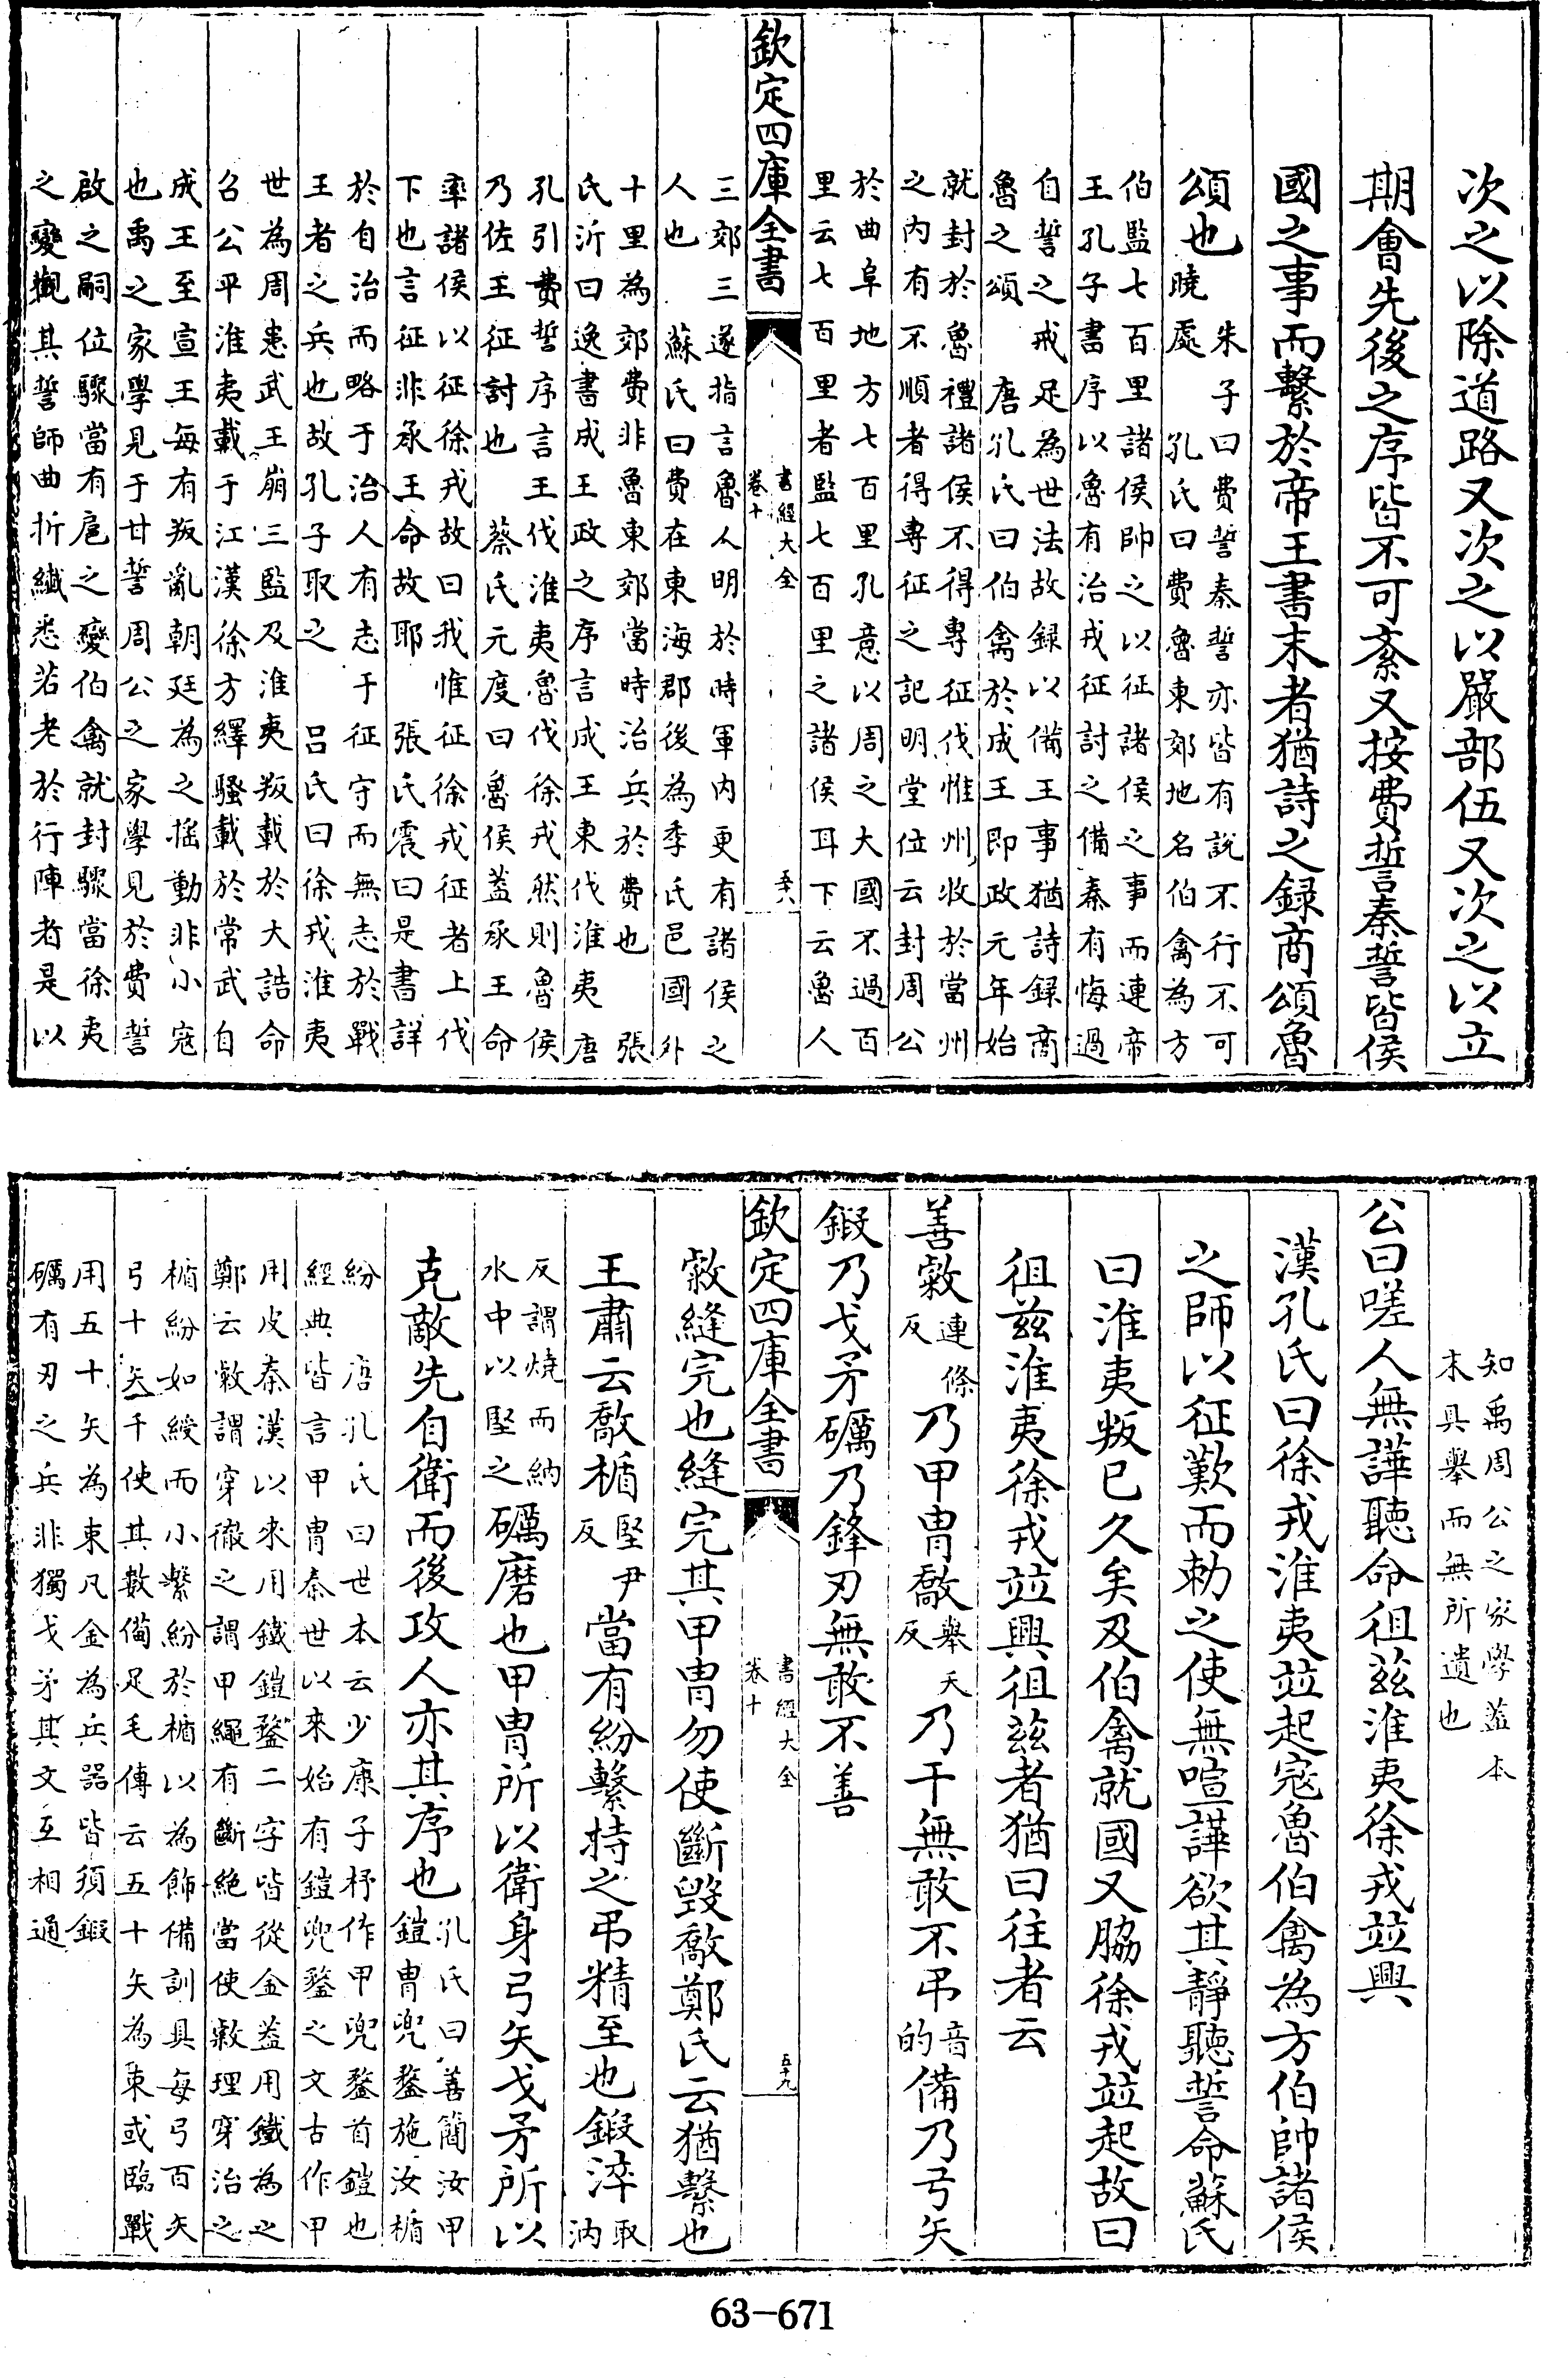 次之以除道路又次之以嚴部伍又次之以立
期會先後之序皆不可紊又按費誓秦誓皆侯
國之事而繫於帝王書末者猶詩之録商頌魯
頌也
朱子曰費誓秦誓亦皆有説不行不可
曉處　孔氏曰費魯東郊地名伯禽為方
伯監七百里諸侯帥之以征諸侯之事而連帝
王孔子書序以魯有治戎征討之備秦有悔過
自誓之戒足為世法故録以備王事猶詩録商
魯之頌　唐孔氏曰伯禽於成王即政元年始
就封於魯禮諸侯不得專征伐惟州牧於當州
之内有不順者得專征之記明堂位云封周公
於曲阜地方七百里孔意以周之大國不過百
里云七百里者監七百里之諸侯耳下云魯人
欽定四庫全書
書經大全
卷十
五十八
三郊三遂指言魯人明於時軍内更有諸侯之
人也　蘇氏曰費在東海郡後為季氏邑國外
十里為郊費非魯東郊當時治兵於費也　張
氏沂曰逸書成王政之序言成王東伐淮夷　唐
孔引費誓序言王伐淮夷魯伐徐戎然則魯侯
乃佐王征討也　蔡氏元度曰魯侯蓋承王命
率諸侯以征徐戎故曰我惟征徐戎征者上伐
下也言征非承王命故耶　張氏震曰是書詳
於自治而略于治人有志于征守而無志於戰
王者之兵也故孔子取之　吕氏曰徐戎淮夷
世為周患武王崩三監及淮夷叛載於大誥命
召公平淮夷載于江漢徐方繹騷載於常武自
成王至宣王每有叛亂朝廷為之揺動非小宼
也禹之家學見于甘誓周公之家學見於費誓
啟之嗣位驟當有扈之變伯禽就封驟當徐夷
之變觀其誓師曲折纎悉若老於行陣者是以
知禹周公之家學蓋本
末具舉而無所遺也
公曰嗟人無譁聽命徂兹淮夷徐戎竝興
漢孔氏曰徐戎淮夷竝起寇魯伯禽為方伯帥諸侯
之師以征歎而勅之使無喧譁欲其靜聽誓命蘇氏
曰淮夷叛已久矣及伯禽就國又脇徐戎竝起故曰
徂兹淮夷徐戎竝興徂兹者猶曰往者云
善敹
連條
反
乃甲冑敿
舉夭
反
乃干無敢不弔
音
的
備乃弓矢
鍛乃戈矛礪乃鋒刃無敢不善
欽定四庫全書
書經大全
卷十
五十九
敹縫完也縫完其甲冑勿使斷毁敿鄭氏云猶繫也
王肅云敿楯
堅尹
反
當有紛繫持之弔精至也鍛淬
取
汭
反謂燒而納
水中以堅之
礪磨也甲冑所以衛身弓矢戈矛所以
克敵先自衛而後攻人亦其序也
孔氏曰善簡汝甲
鎧冑兜鍪施汝楯
紛　唐孔氏曰世本云少康子杼作甲兜鍪首鎧也
經典皆言甲冑秦世以來始有鎧兜鍪之文古作甲
用皮秦漢以來用鐵鎧鍪二字皆從金蓋用鐵為之
鄭云敹謂穿徹之謂甲繩有斷絶當使敹理穿治之
楯紛如綬而小繫紛於楯以為飾備訓具每弓百矢
弓十矢千使其數備足毛傳云五十矢為束或臨戰
用五十矢為束凡金為兵器皆須鍛
礪有刃之兵非獨戈矛其文互相通
63-671